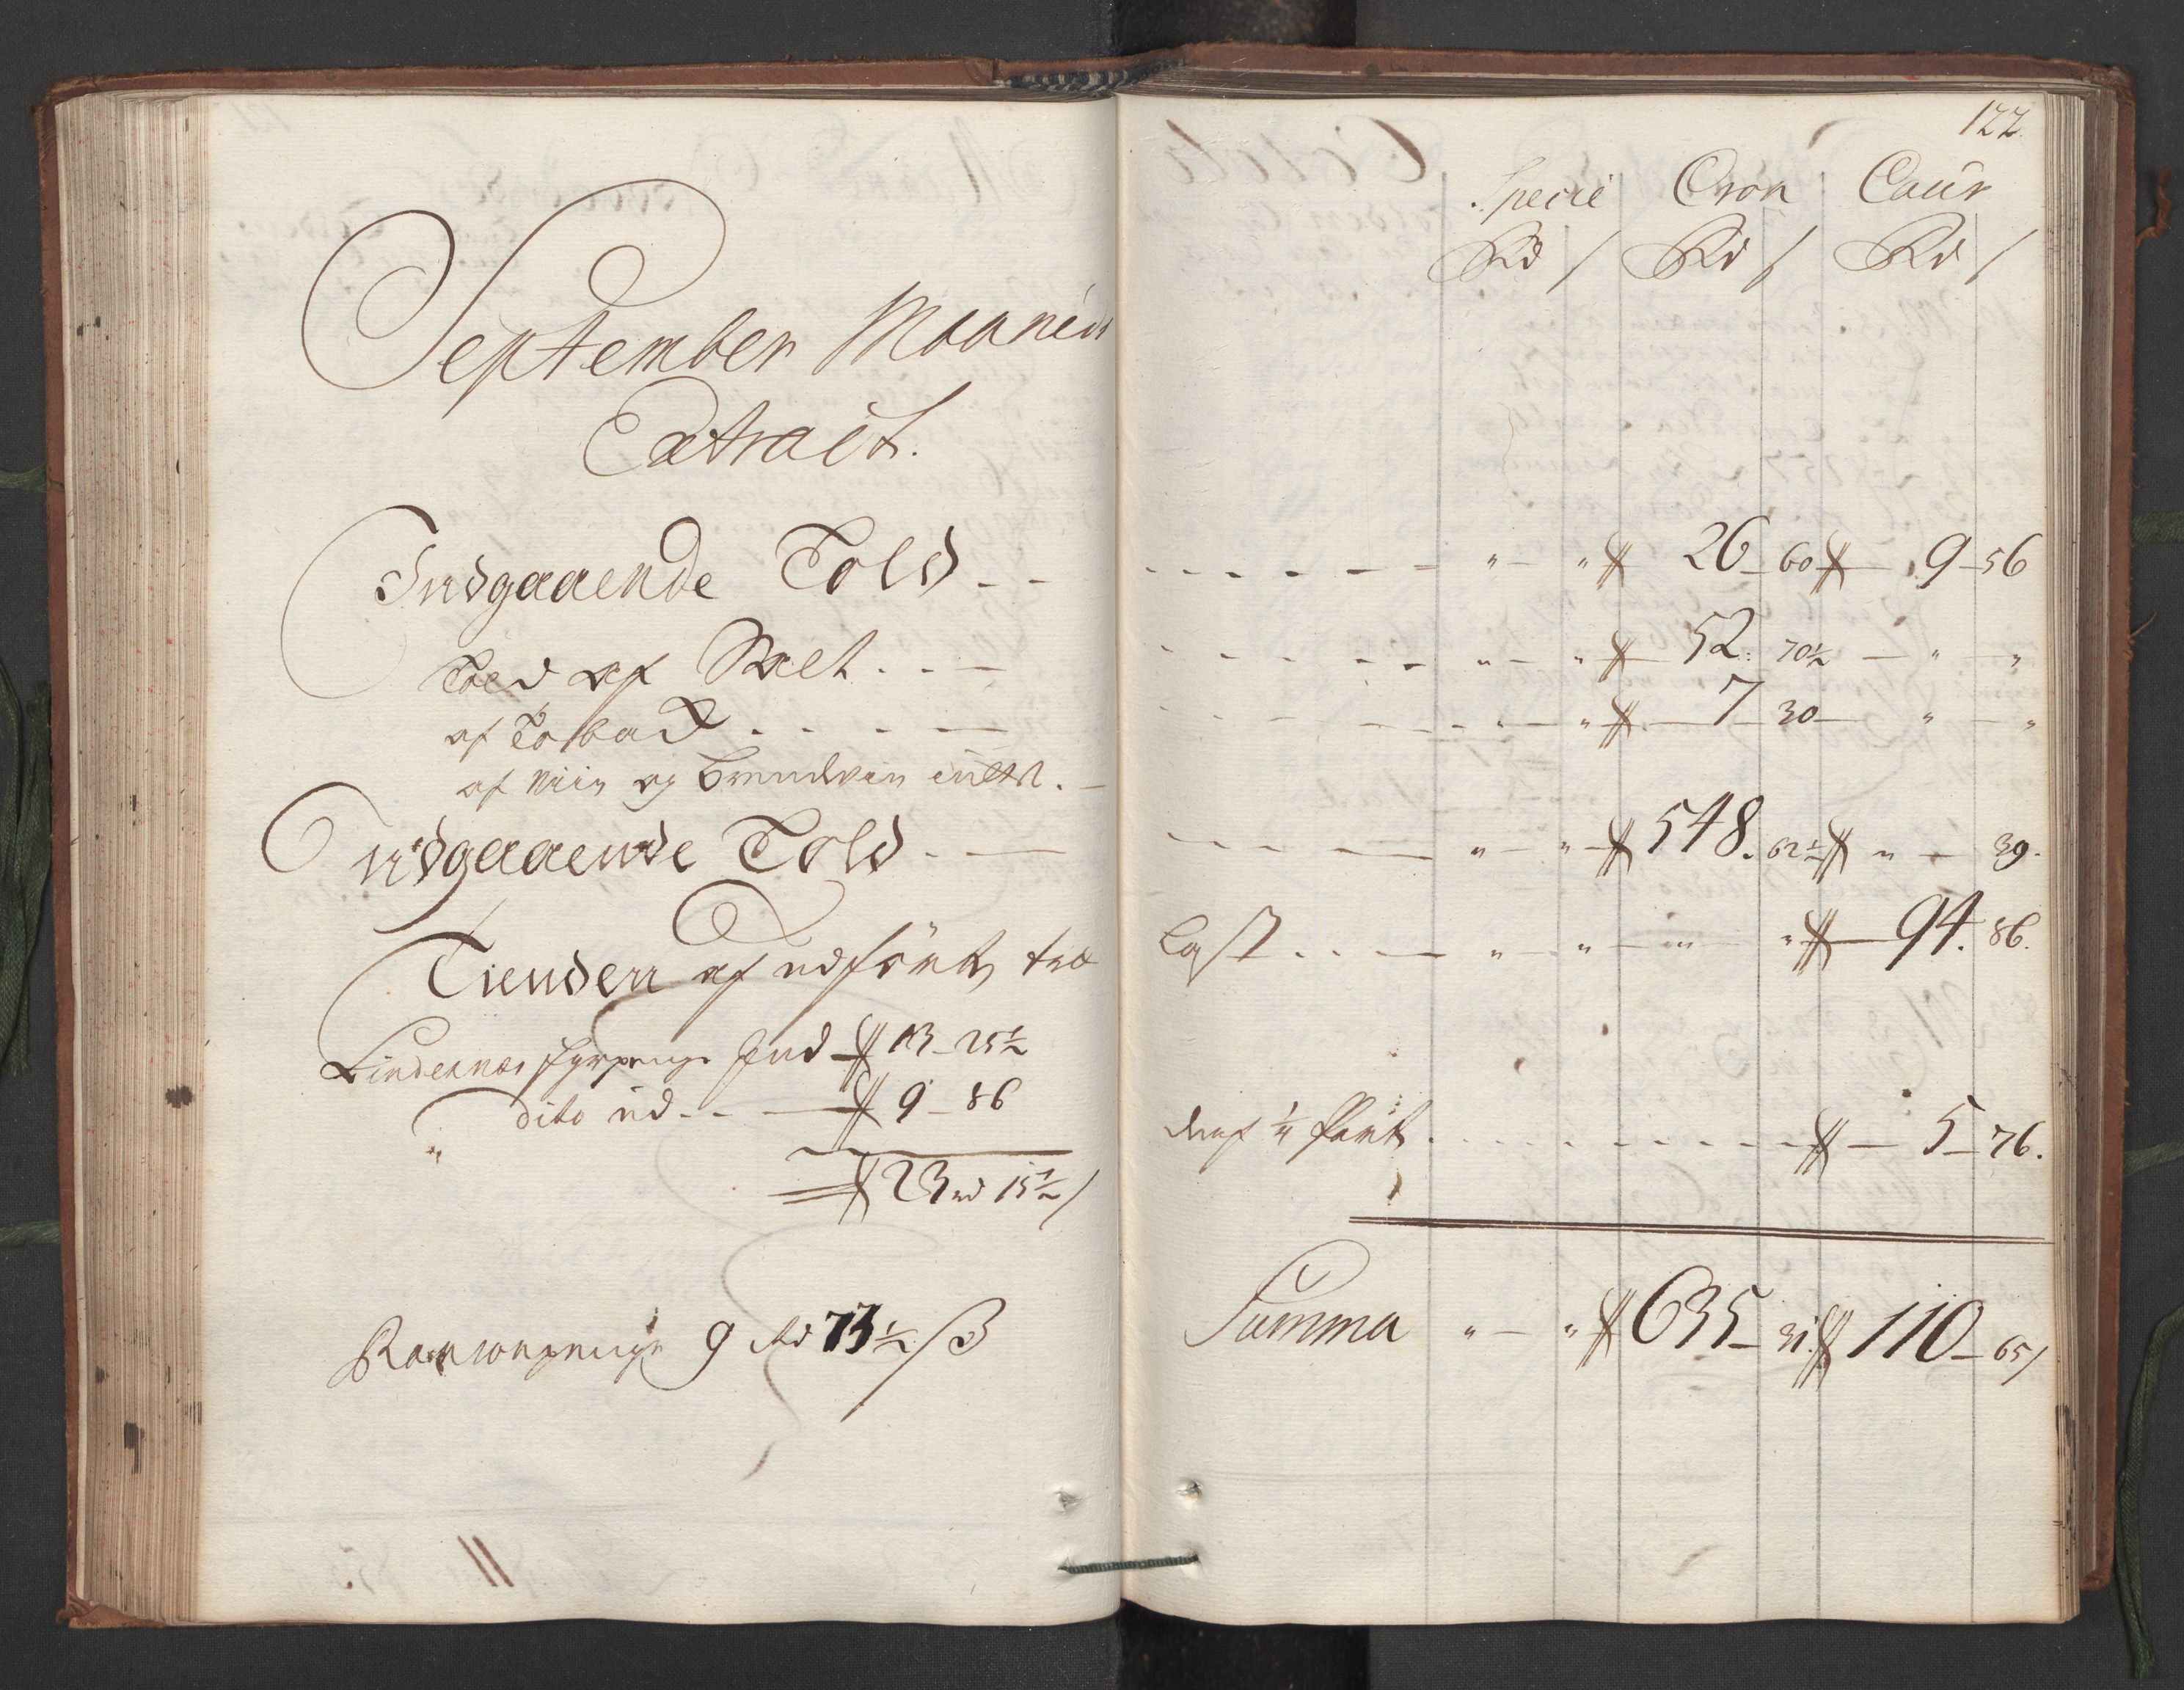 122.
Specie Cron Cour
Rd / Rd / Rd /
September Maaneds
Extract.
Indgaaende Told - - - - - " - " 26 - 60 - 9 - 56
Told af Salt . - - - - - " - " 52: 70½ - " - "
af Toback . - - - - - - " 7 - 30 - " - "
af Viin og Brendeviin
Udgaaende Told - - - - - " - " 548. 62½ " - 39.
Tienden af udført træ Last . . - " - " - " - " 94. 86.
Lindesnes fyrpenge Ind 13 - 25½
" dito ud - - - 9 - 86
23 rd 15½ /
deraf ¼ Part . - - - - - - - 5 - 76.
Summa " - " 635 - 31. 110 - 65 /
Ransonpenge 9 rd 73½ ß